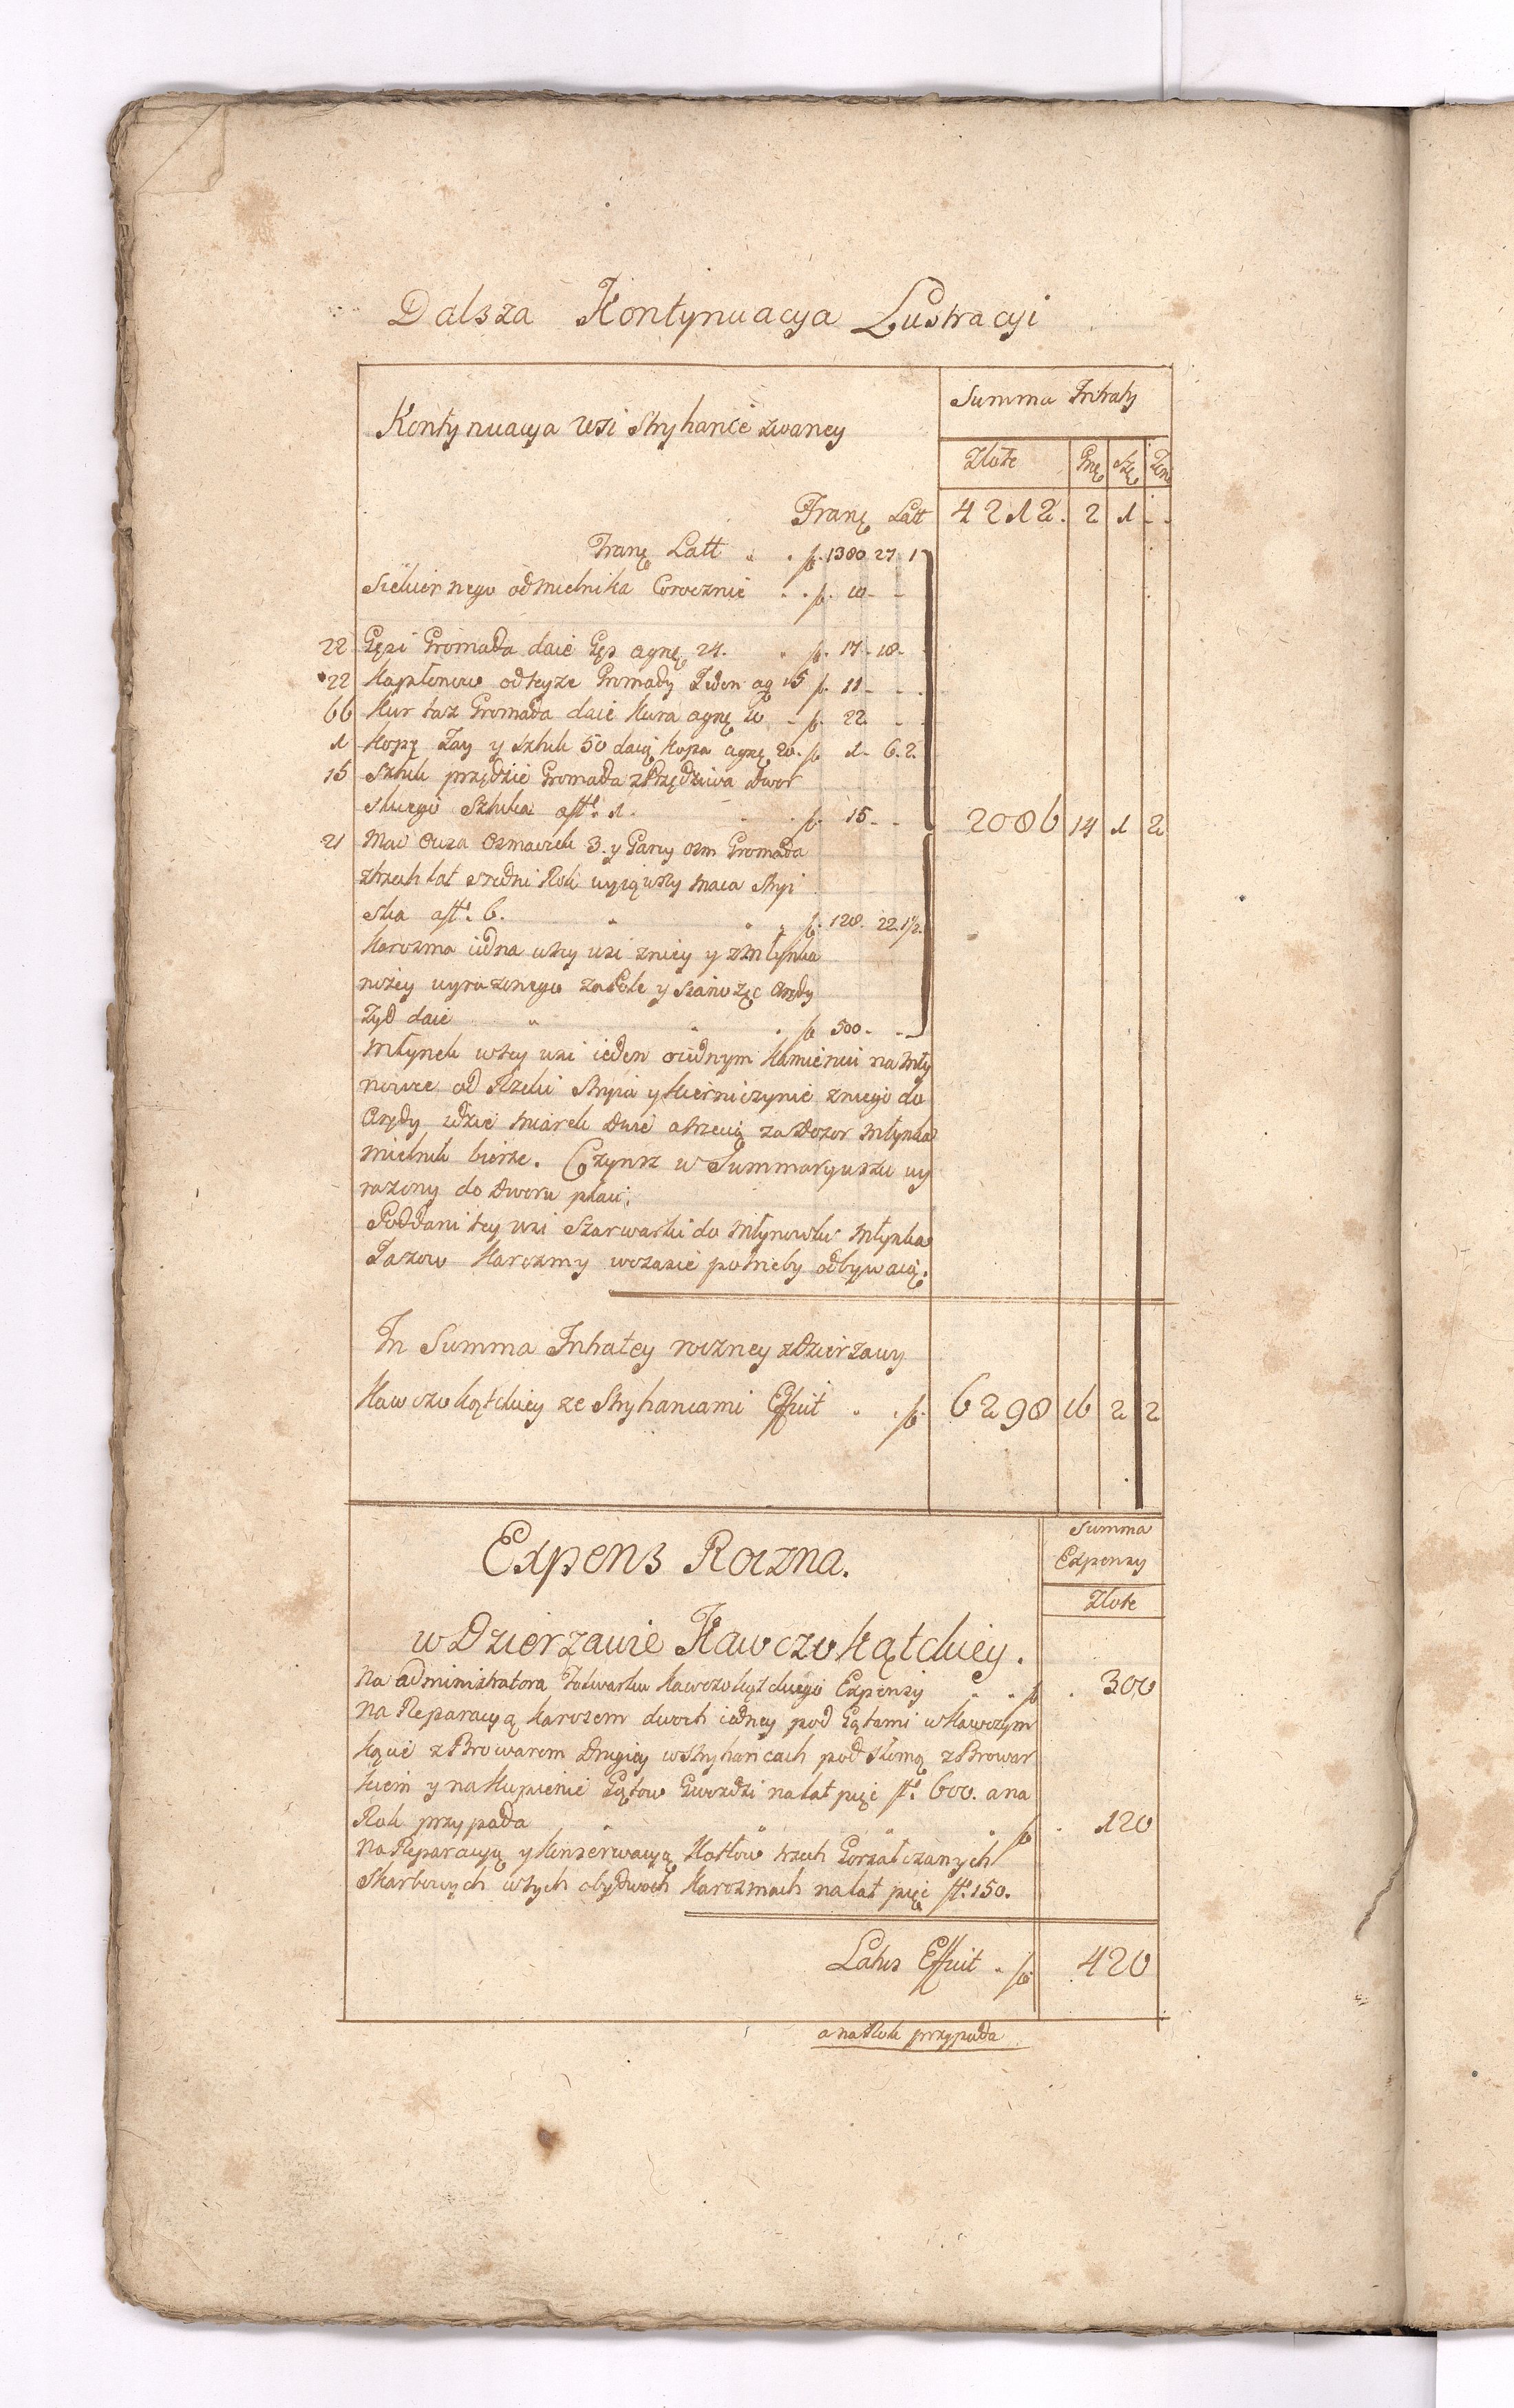 Dalsza Kontynuacya Lustracyi
Kontynuacya wsi Stryhańce zwaney
Summa Intraty
Złote
Transp Latt 4212. 2 1 - -
Transp Latt f. 1380 27 1
Siekiernego od Mielnika Corocznie f. 10 - -
22 Gęsi Gromada daie Gęś a gr 24. f. 17 - 18 -
22 Kapłonow od teyże Gromady Jeden a g 15 f. 11 - -
66 Kur taż Gromada daie Kura a gr 10 f. 22. - -
1 Kopę Jay y sztuk 50 daią kopa a gr 20. f. 1 - 6. 2.
15 Sztuk przędzie Gromada z Przędziwa Dwor
skiego Sztuka a ff. 1. f. 15 - -
2086 14 1 2
21 Mac Owsa Osmaczek 3. y Garcy osm Gromada
z trzech lat sredni Rok wyiąwszy maca Stryi
ska a ff. 6. f. 128. 22. 1 1/2.
Karczma iedna w tey wsi z niey y z Młynka
niżey wyrażonego
Żyd daie f. 500 - -
Młynek w tey wsi ieden o iednym Kamieniu na Mły
nowce od Rzeki Stryia y Kierniczynie z niego do
Arędy idzie miarek dwie a trzecią za Dozor Młynka
Mielnik bierze. Czynsz w Summaryuszu wy
rażony do Dworu płaci.
Poddani tey wsi Szarwarki do Młynowki Młynka
Jazow Karczmy w czasie potrzeby odbywaią.
In Summa Intratey roczney z Dzierżawy
Kawczokątckiey ze Stryhancami Efficit f. 6298 16 2 2
Expens Roczna.
Summa
Expensy
Złote
w Dzierżawie Kawczokątckiey.
Na administratora Folwarku Kawczokątckiego Expensy f. 300
Na Reparacyą Karczem dwoch iedney pod Gątami w Kawczym
Kącie z Browarem Drugiey w Stryhańcach pod słomą z Browar
kiem y na kupienie Gątow Gwozdzi na lat pięć ff. 600. a na
Rok przypada f. 120
Na Reparacyą y Konserwacyą Kotłow trzech Gorzałczanych
Skarbowych w tych obydwoch Karczmach na lat pięć ff. 150.
Latus Efficit f. 420
a na Rok przypada